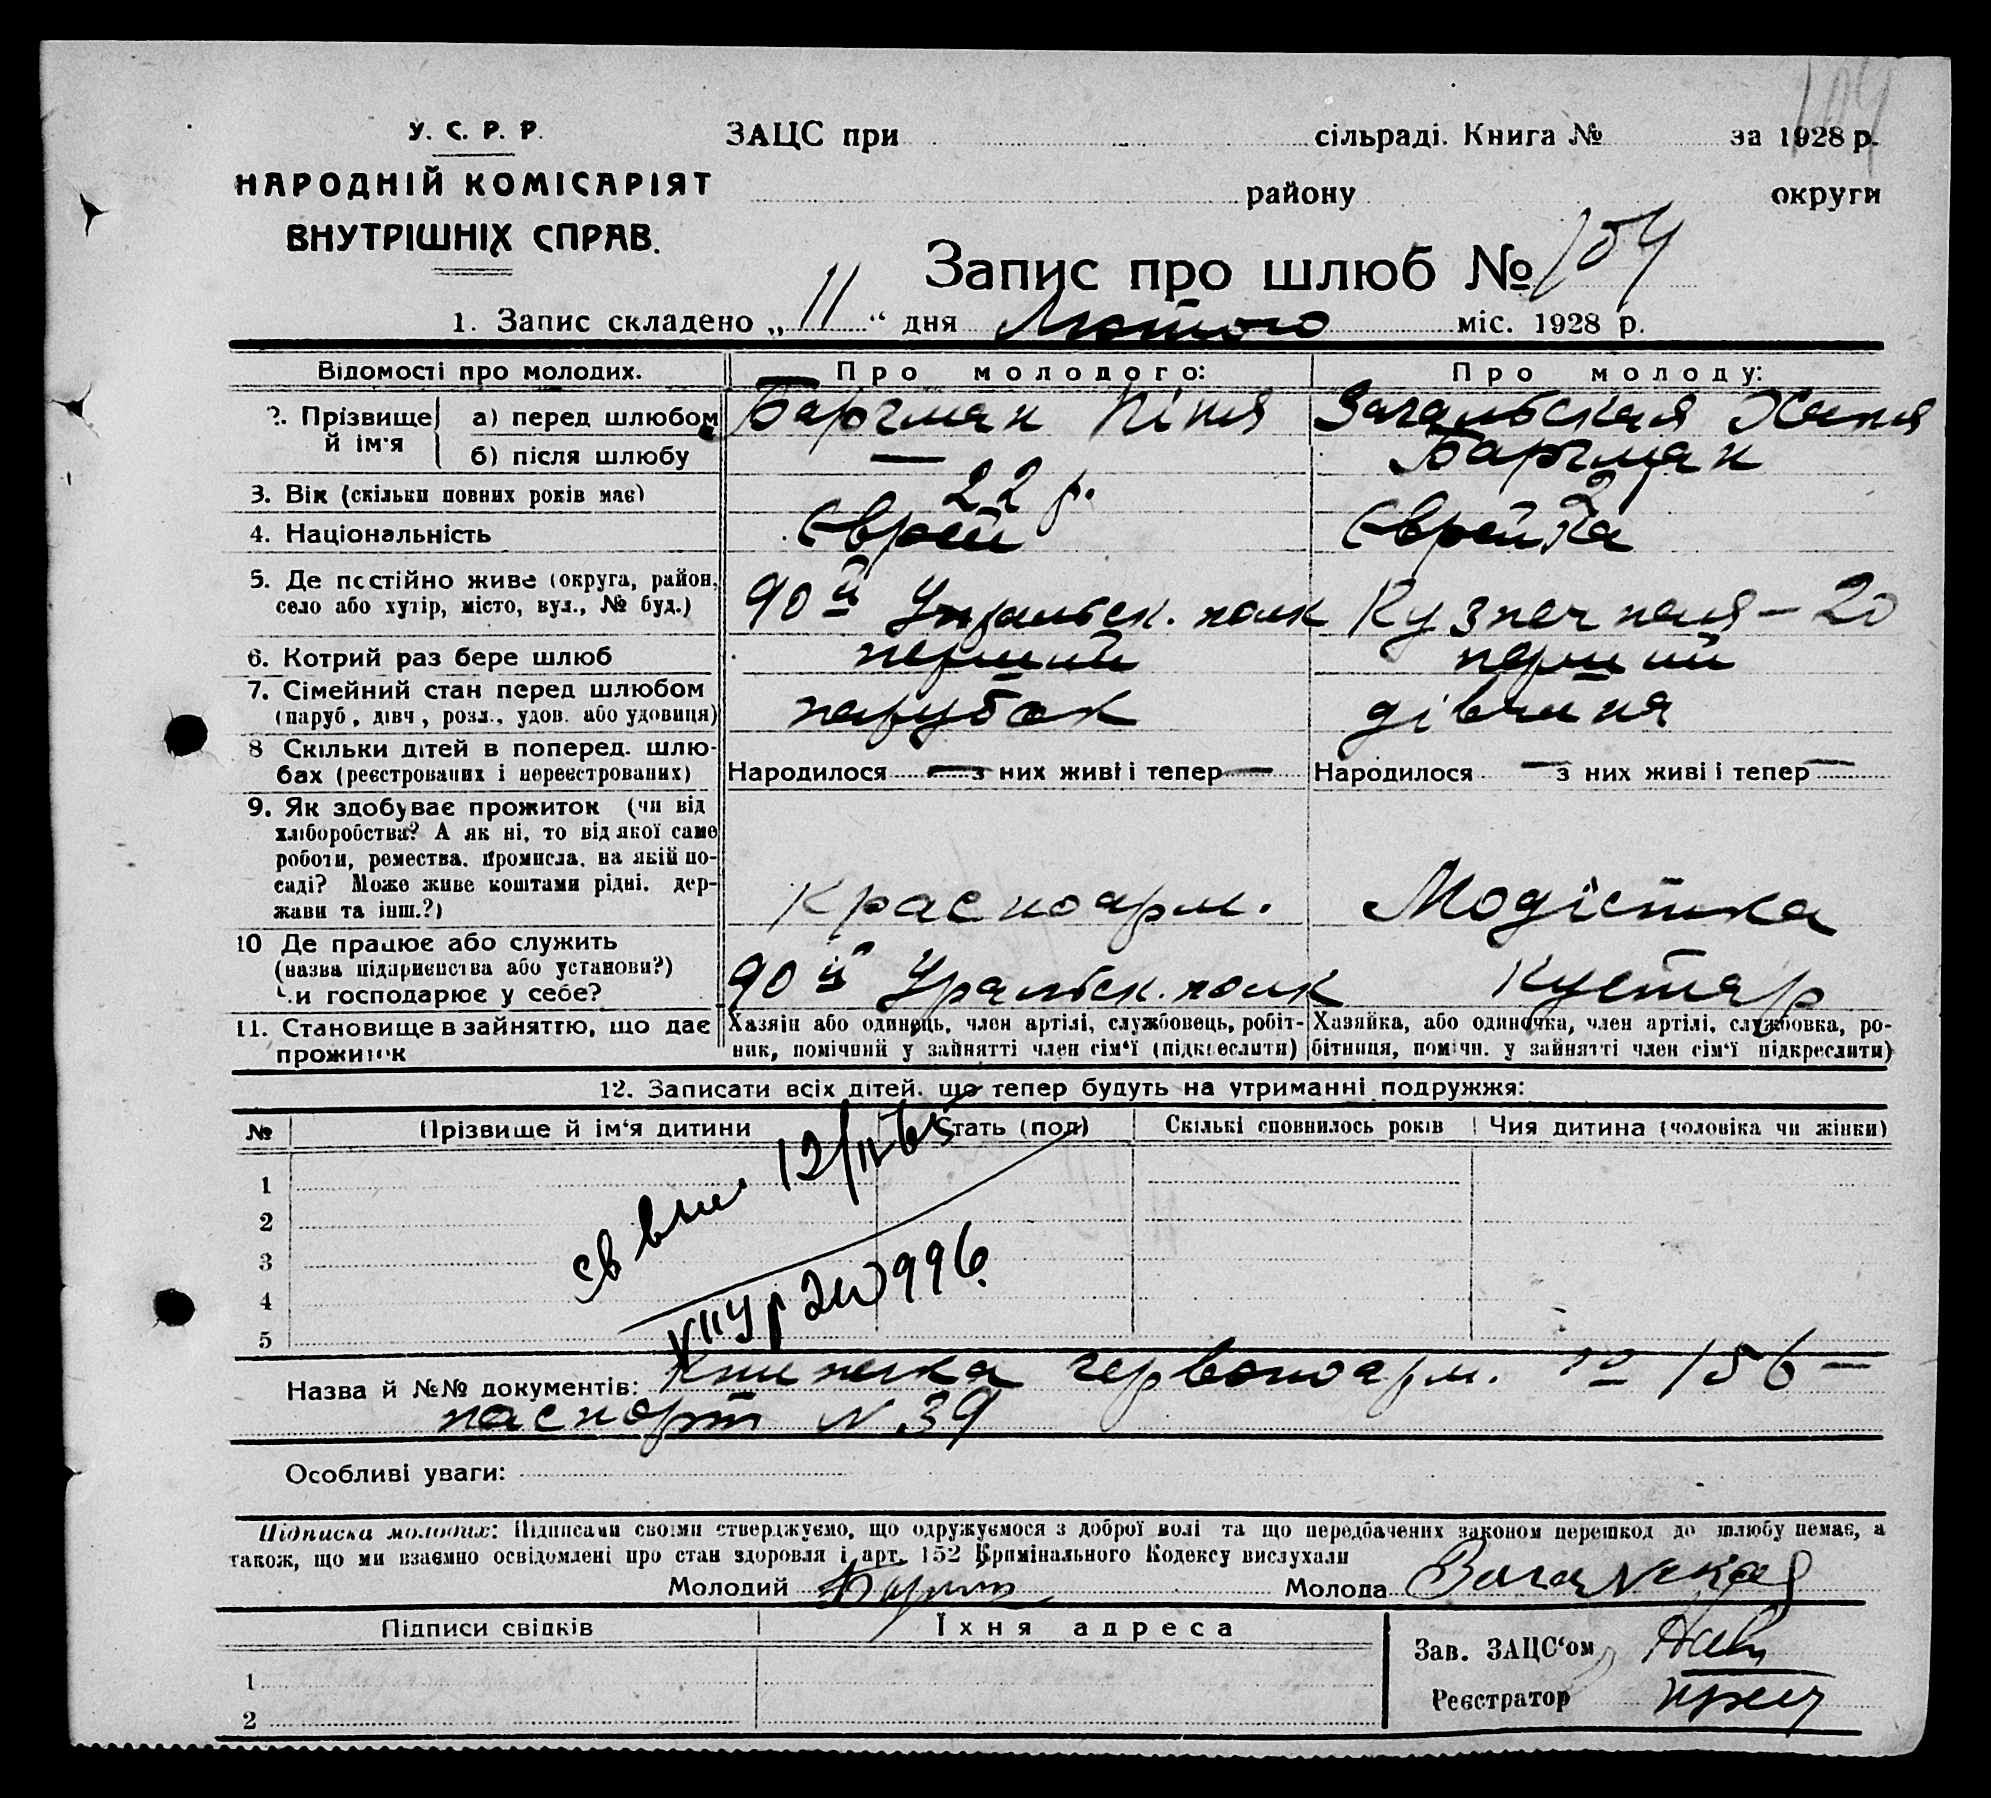 У. С. Р. Р.
НАРОДНІЙ КОМІСАРІЯТ
ВНУТРІШНІХ СПРАВ.
104
ЗАЦС при сільраді. Книга № за 1928 р.
району округи
Запис про шлюб № 104
1. Запис складено „ 11 “ дня Лютого міс. 1928 р.
Відомості про молодих. Про молодого: Про молоду:
2. Прізвище й ім'я а) перед шлюбом Баргман Піня Загальская Хана
б) після шлюбу — Баргман
3. Вік (скільки повних років має) 22 р.
4. Національність Єврей Єврейка
5. Де постійно живе (округа, район, село або хутір, місто, вул., № буд.) 90й Уральск. полк Кузнечная – 20
6. Котрий раз бере шлюб перший перший
7. Сімейний стан перед шлюбом (паруб, дівч, розл., удов. або удовиця) парубок дівчиня
8 Скільки дітей в поперед. шлюбах (реєстрованих і нереєстрованих) Народилося — з них живі і тепер — Народилося — з них живі і тепер —
9. Як здобуває прожиток (чи від хліборобства? А як ні, то від якої саме роботи, ремества, промисла, на якій посаді? Може живе коштами рідні, держави та інш.?) Красноарм. Модістка
10 Де працює або служить (назва підприємства або установи?) Чи господарює у себе? 90й Уральск. полк Кустар
11. Становище в зайняттю, що дає прожиток Хазяін або одинець, член артілі, службовець, робітник, помічний у зайнятті член сім'ї (підкреслити) Хазяйка, або одиночка, член артілі, службовка, робітниця, помічн. у зайнятті член сім'ї підкреслити)
12. Записати всіх дітей, що тепер будуть на утриманні подружжя:
№ Прізвище й ім'я дитини Стать (пол) Скількі сповнилось років Чия дитина (чоловіка чи жінки)
1
2
3
4
5
Назва й №№ документів: Книжка червоноарм. № 156 –
паспорт N 39
Особливі уваги:
Підписка молодих: Підписами своїми стверджуємо, що одружуємося з доброї волі та що передбачених законом перешкод до шлюбу немає, а
також, що ми взаємно освідомлені про стан здоровля і арт. 152 Крімінального Кодексу вислухали
Молодий Молода
Підписи свідків Їхня адреса
Зав. ЗАЦС'ом
1
Реєстратор
2